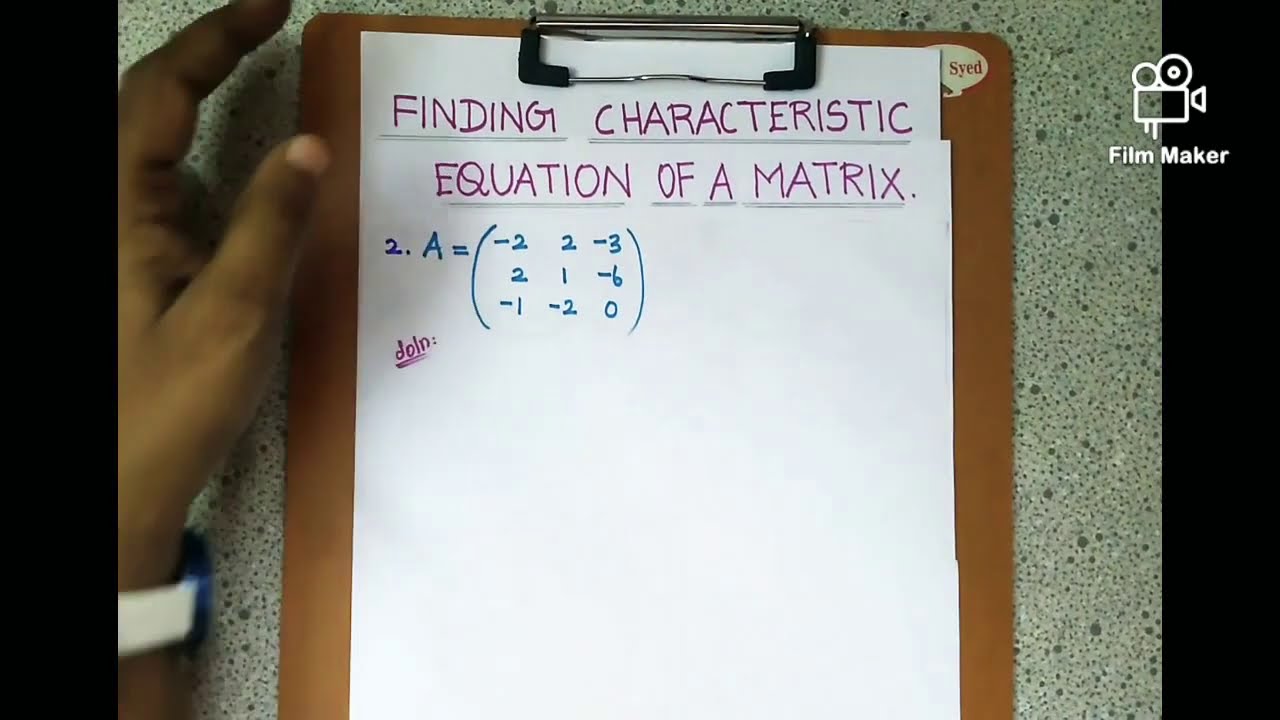 Syed
Film Maker
FINDING CHARACTERISTIC
EQUATION OF A MATRIX.
2. A = (-2 2 -3
2 1 -6
-1 -2 0)
Soln: